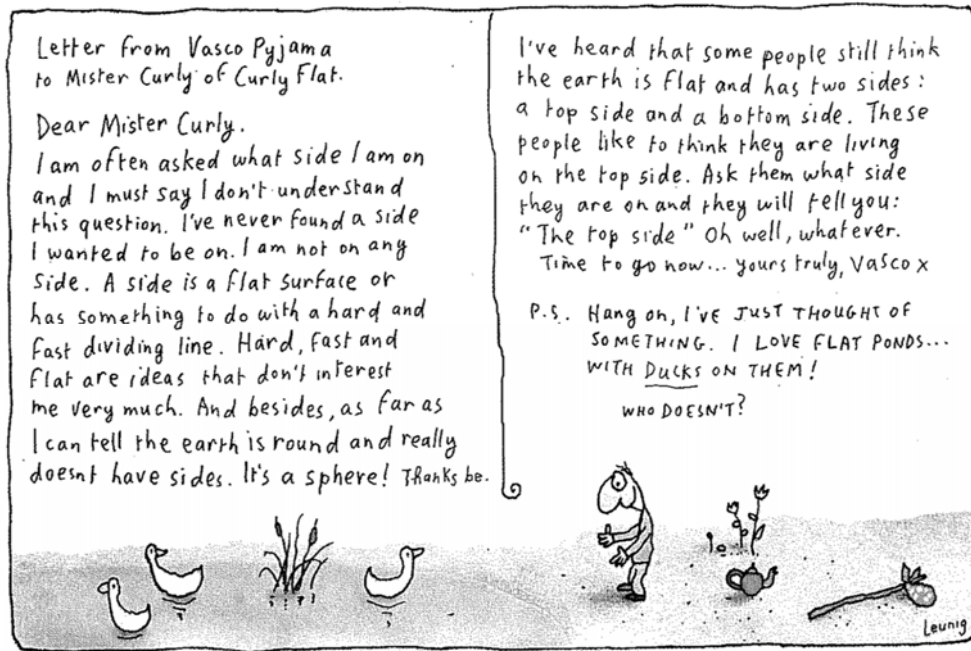 Letter from Vasco Pyjama
to Mister Curly of Curly Flat.
Dear Mister Curly.
I am often asked what side I am on
and I must say I don't understand
this question. I've never found a side
I wanted to be on. I am not on any
side. A side is a flat surface or
has something to do with a hard and
fast dividing line. Hard, fast and
flat are ideas that don't interest
me very much. And besides, as far as
I can tell the earth is round and really
doesnt have sides. It's a sphere! Thanks be.
I've heard that some people still think
the earth is flat and has two sides:
a top side and a bottom side. These
people like to think they are living
on the top side. Ask them what side
they are on and they will tell you:
"The top side" Oh well, whatever.
Time to go now... yours truly, Vasco x
P.S. Hang on, I'VE JUST THOUGHT OF
SOMETHING. I LOVE FLAT PONDS...
WITH DUCKS ON THEM!
WHO DOESN'T?
Leunig